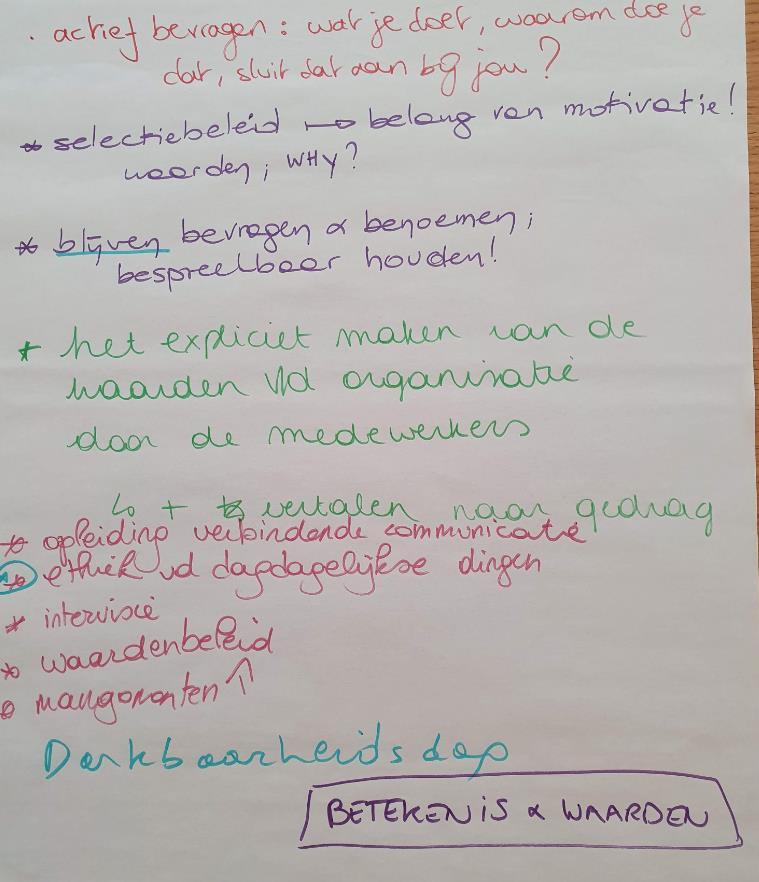 . actief bevragen : wat je doet, waarom doe je
dat, sluit dat aan bij jou ?
* selectiebeleid → belang van motivatie !
waarden ; WHY ?
* blijven bevragen & benoemen ;
bespreekbaar houden !
* het expliciet maken van de
waarden v/d organisatie
door de medewerkers
↳ + vertalen naar gedrag
* opleiding verbindende communicatie
* ethiek vd dagdagelijkse dingen
* intervisie
* waardenbeleid
* mangomonten ↑
Dankbaarheidsdag
BETEKENIS & WAARDEN